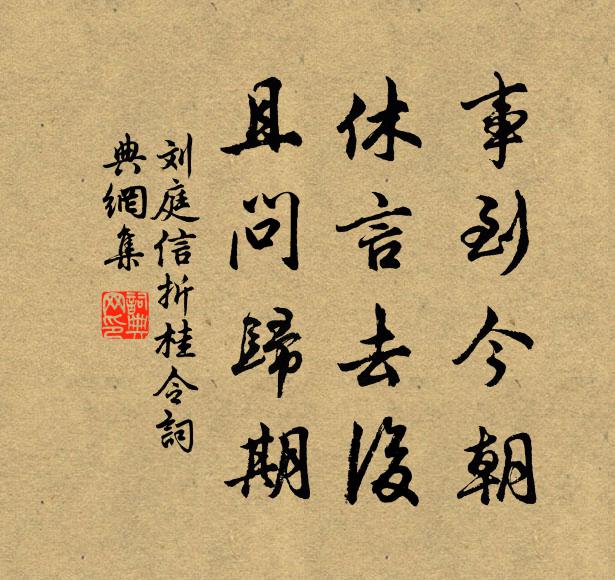 事到今朝
休言去後
且问歸期
刘庭信折桂令詞
典網集
詞典
网印